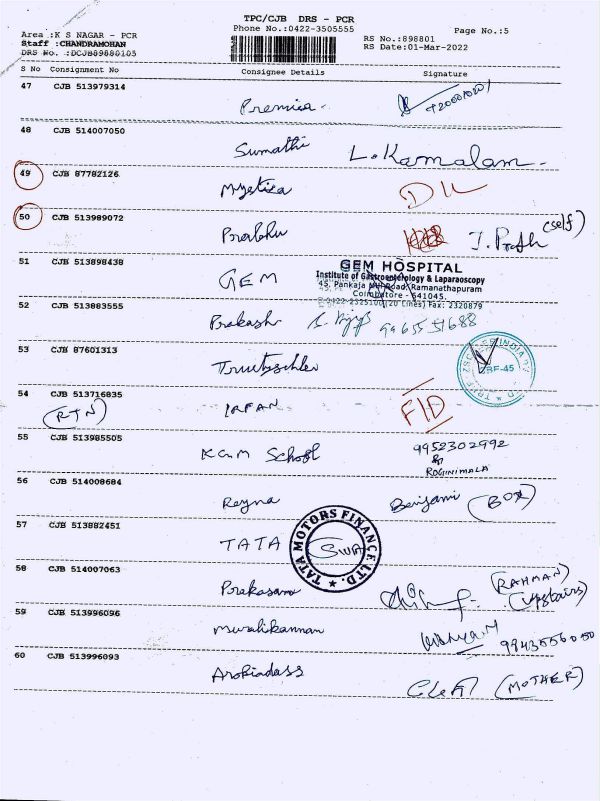 TPC/CJB DRS - PCR
Area :K S NAGAR - PCR
Phone No.:0422-3505555
Page No.:5
Staff :CHANDRAMOHAN
RS No.:898801
DRS No. :DCJB89880105
RS Date:01-Mar-2022
S No Consignment No Consignee Details Signature
47 CJB 513979314
Premica
48 CJB 514007050
Sumathi L. Kamalam
49 CJB 87782126
Mystica DL
50 CJB 513989072
Prabhu (self)
51 CJB 513898438
GEM
GEM HOSPITAL
Institute of Gastroenterology & Laparaoscopy
45, Pankaja Mill Road, Ramanathapuram
Coimbatore - 641045.
0422-2525100 (20 Lines) Fax: 2320879
52 CJB 513883555
Prakash 9965551688
53 CJB 87601313
Trutzschler
54 CJB 513716835
(RTN) IRFAN FID
55 CJB 513985505
KGM School 9952302992
ROGINIMALA
56 CJB 514008684
Reyna Benjami (BOX)
57 CJB 513882451
TATA
TATA MOTORS FINANCE LTD.
58 CJB 514007063
Prakasam (RAHMAN)
(Upstairs)
59 CJB 513996096
Muralikannan 9943556050
60 CJB 513996093
Arokiadass (MOTHER)